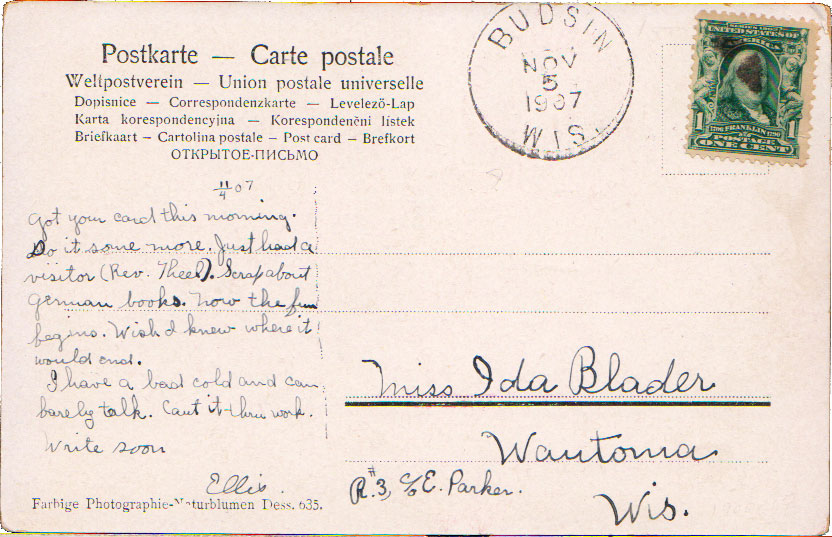 Postkarte — Carte postale
Weltpostverein — Union postale universelle
Dopisnice — Correspondenzkarte — Levelező-Lap
Karta korespondencyjna — Korespondenční lístek
Briefkaart — Cartolina postale — Post card — Brefkort
ОТКРЫТОЕ-ПИСЬМО
BUDSIN
NOV
5
1907
WIS
SERIES 1902
UNITED STATES OF
AMERICA
1 1706 FRANKLIN 1790 1
POSTAGE
ONE CENT
11/4 07
Got your card this morning.
Do it some more. Just had a
visitor (Rev. Theel). Scrap about
German books. Now the fun
begins. Wish I knew where it
would end.
I have a bad cold and can
barely talk. Caut it thru work.
Write soon
Ellis.
Miss Ida Blader
Wautoma
R.#3, c/o E. Parker.
Wis.
Farbige Photographie-Naturblumen Dess. 635.